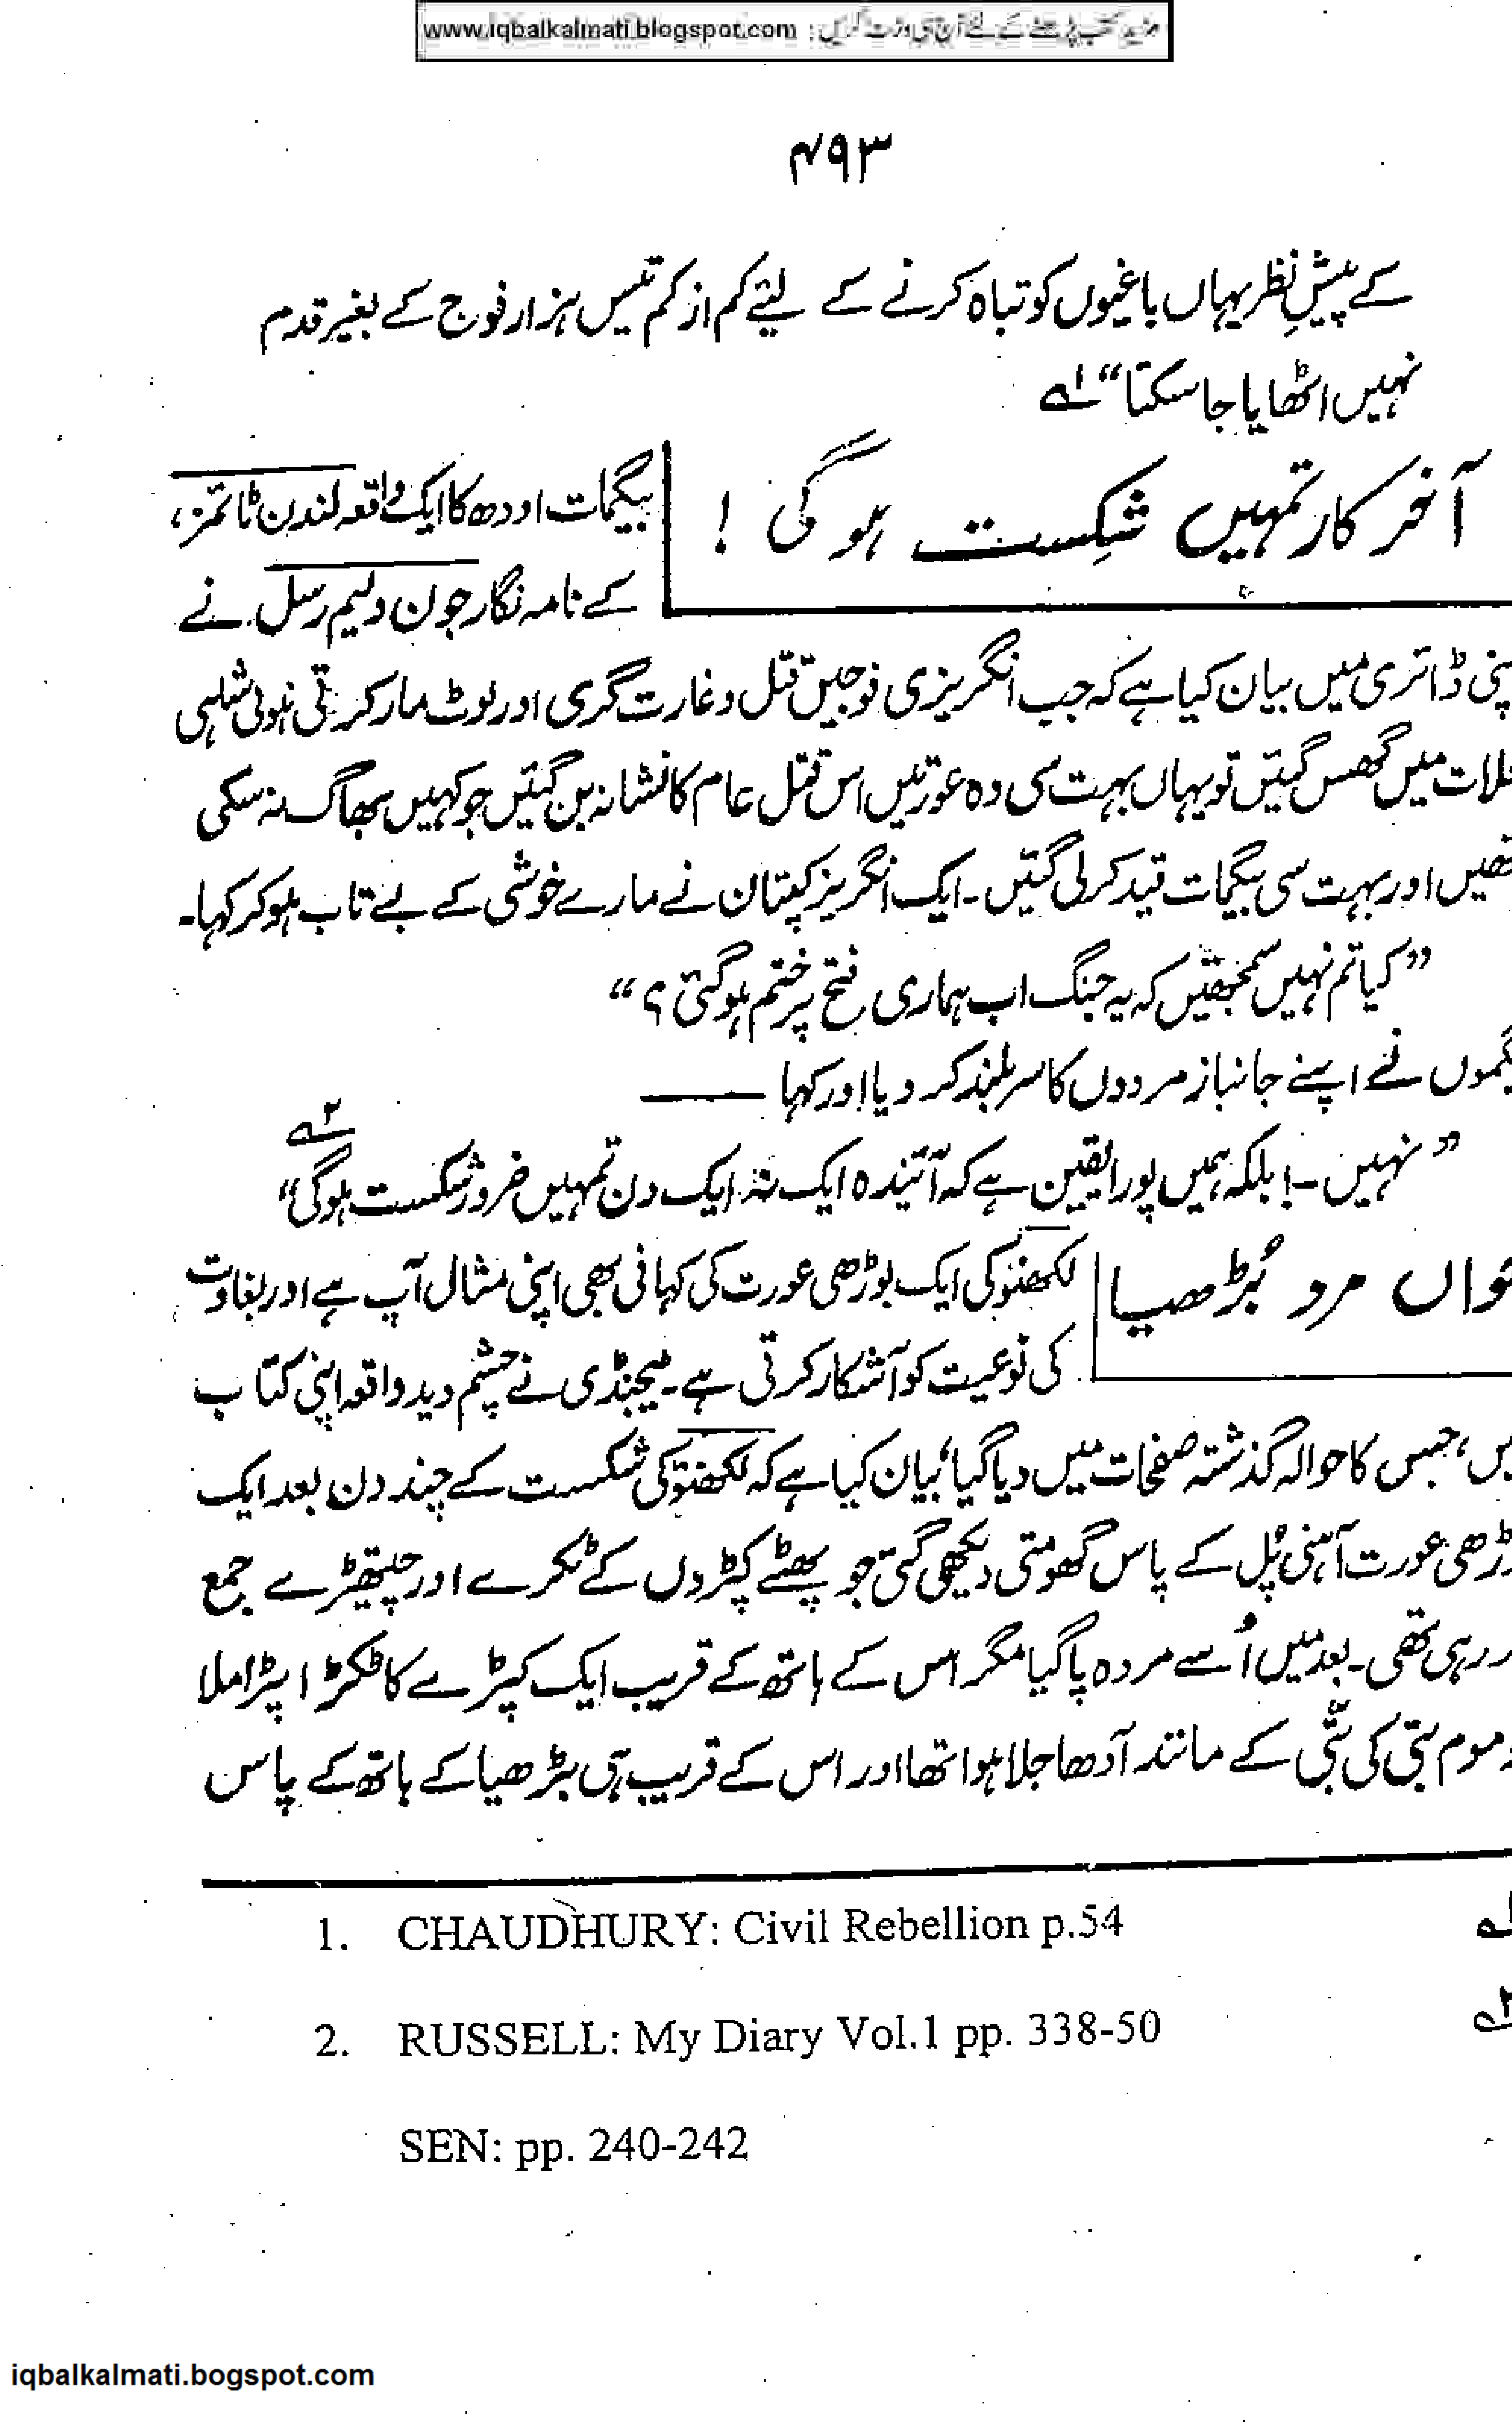 www.iqbalkalmati.blogspot.com : مزید کتب پڑھنے کے لئے آج ہی وزٹ کریں
۴۹۳
کے پیشِ نظر یہاں باغیوں کو تباہ کرنے کے لیئے کم از کم تیس ہزار فوج کے بغیر قدم
نہیں اٹھایا جا سکتا“ ۱؎
آخر کار تمہیں شکست ہوگی !
بیگمات اودھ کا ایک واقعہ لندن ٹائمز،
کے نامہ نگار جون ولیم رسل نے
پنی ڈائری میں بیان کیا ہے کہ جب انگریزی فوجیں قتل و غارت گری اور لوٹ مار کرتی ہوئی شاہی
لات میں گھس گئیں تو یہاں بہت سی وہ عورتیں اس قتل عام کا نشانہ بن گئیں جو کہیں بھاگ نہ سکی
تھیں اور بہت سی بیگمات قید کر لی گئیں۔ ایک انگریز کپتان نے مارے خوشی کے بے تاب ہو کر کہا۔
”کیا تم نہیں سمجھتیں کہ یہ جنگ اب ہماری فتح پر ختم ہو گئی ؟“
گموں نے اپنے جانباز مردوں کا سر بلند کر دیا اور کہا ——
”نہیں -! بلکہ ہمیں پورا یقین ہے کہ آئیندہ ایک نہ ایک دن تمہیں ضرور شکست ہو گی“ ۲؎
واں مرد بُڑھیا
لکھنؤ کی ایک بوڑھی عورت کی کہانی بھی اپنی مثال آپ ہے اور بغاوت
کی نوعیت کو آشکار کرتی ہے۔ میجنڈی نے چشم دید واقعہ اپنی کتاب
یں، جس کا حوالہ گذشتہ صفحات میں دیا گیا، بیان کیا ہے کہ لکھنؤ کی شکست کے چند دن بعد ایک
ڑھی عورت آہنی پُل کے پاس گھومتی دیکھی گئی جو پھٹے کپڑوں کے ٹکرے اور چیتھڑے جمع
ر رہی تھی۔ بعد میں اُسے مردہ پا گیا مگر اس کے ہاتھ کے قریب ایک کپڑے کا ٹکڑا پڑا ملا
موم بتی کی بتّی کے مانند آدھا جلا ہوا تھا اور اس کے قریب ہی بڑھیا کے ہاتھ کے پاس
1. CHAUDHURY: Civil Rebellion p.54 ۱؎
2. RUSSELL: My Diary Vol.1 pp. 338-50 ۲؎
SEN: pp. 240-242
iqbalkalmati.bogspot.com